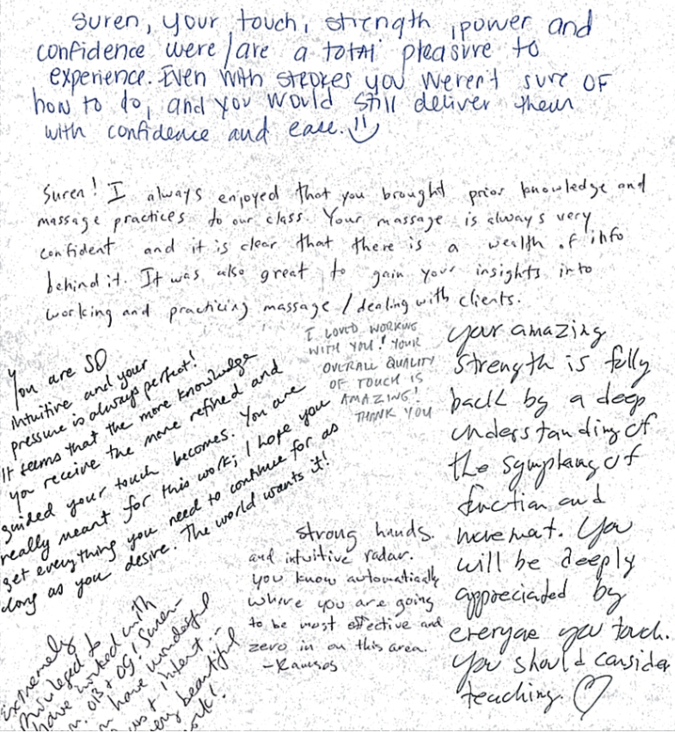 Suren, your touch, strength, power and
confidence were/are a total pleasure to
experience. Even with strokes you weren't sure of
how to do, and you would still deliver them
with confidence and ease.
Suren! I always enjoyed that you brought prior knowledge and
massage practices to our class. Your massage is always very
confident and it is clear that there is a wealth of info
behind it. It was also great to gain your insights into
working and practicing massage / dealing with clients.
You are SO
intuitive and your
pressure is always perfect!
It seems that the more knowledge
you receive the more refined and
guided your touch becomes. You are
really meant for this work; I hope you
get everything you need to continue for as
long as you desire. The world wants it!
I LOVED WORKING
WITH YOU! YOUR
OVERALL QUALITY
OF TOUCH IS
AMAZING!
THANK YOU
Your amazing
strength is fully
back by a deep
understanding of
the symphony of
function and
movemat. You
will be deeply
appreciated by
everyone you touch.
You should consider
teaching. ♡
strong hands.
and intuitive radar.
you know automatically
where you are going
to be most effective and
zero in on this area.
-Ramsos
Extremely
privileged to
have worked with
OB + OG! Suren
have wonderful
intent.
very beautiful
work!